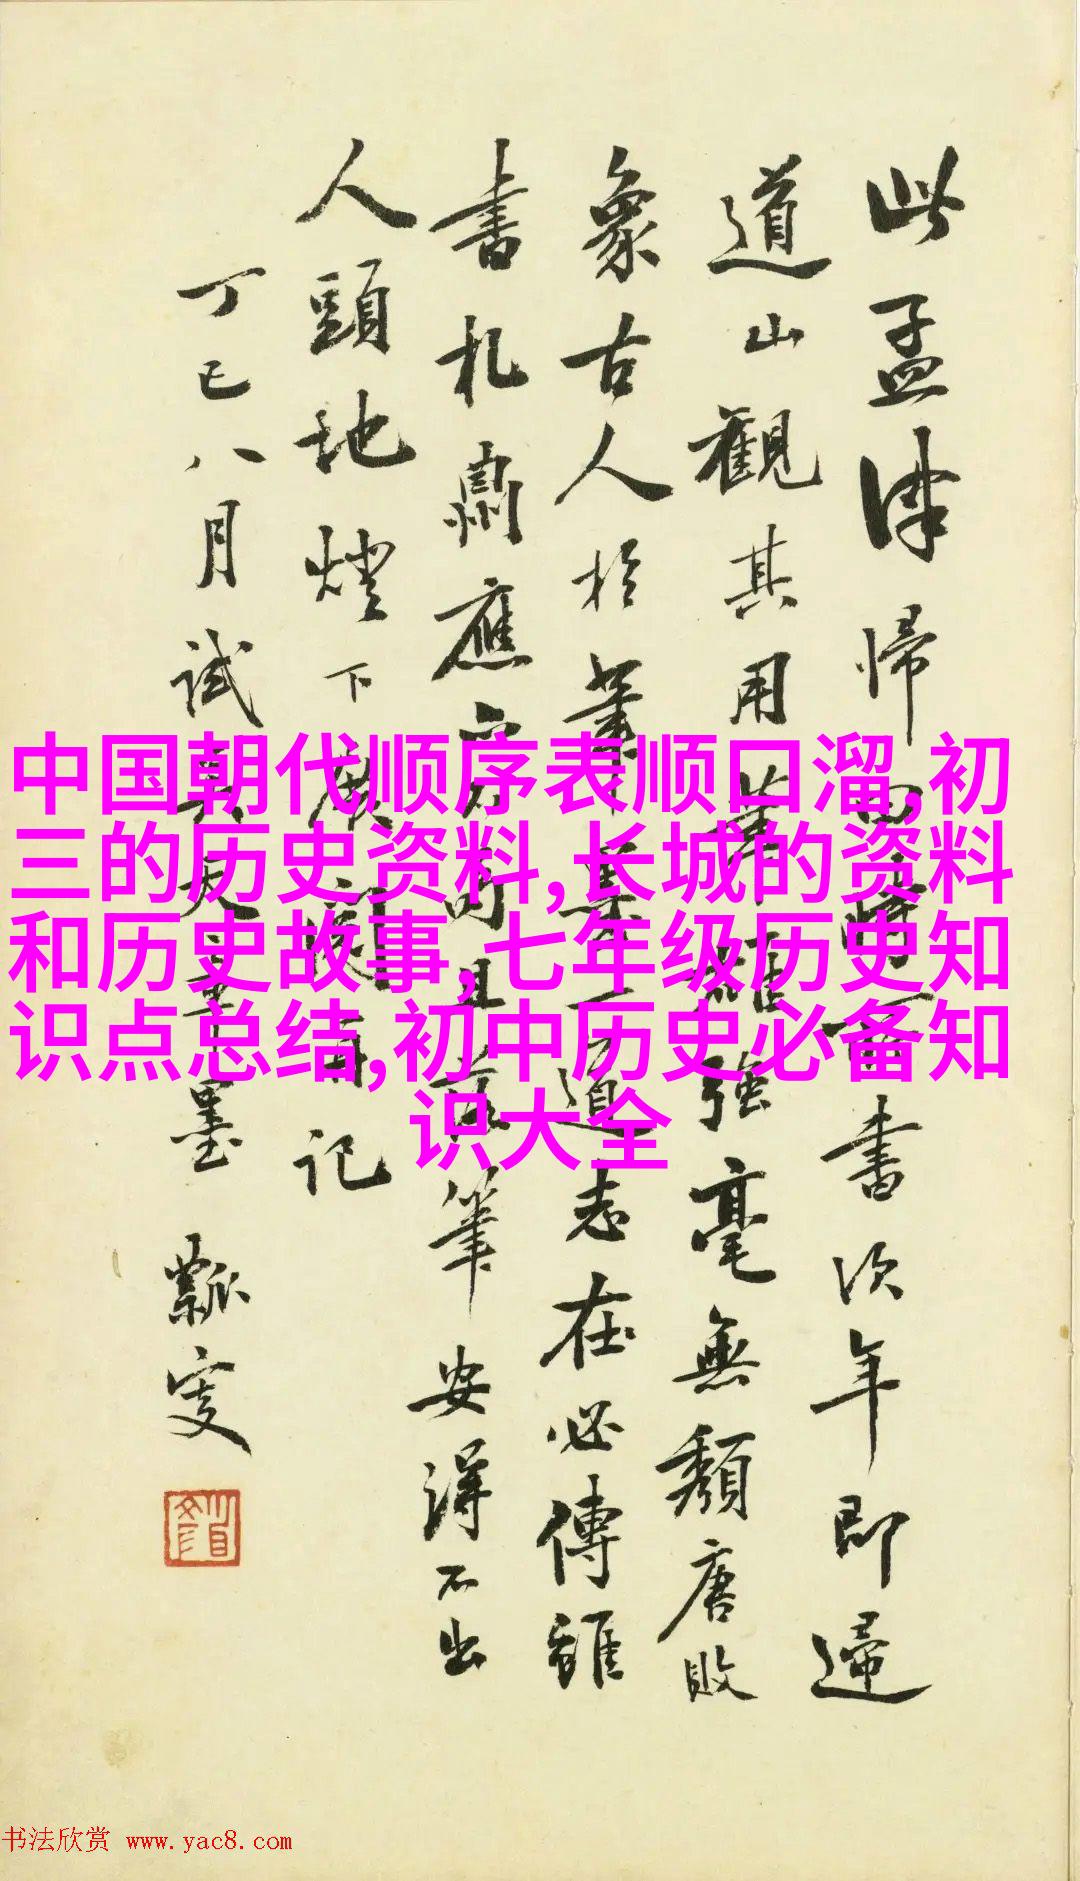 中国朝代顺序表顺口溜,初
三的历史资料,长城的资料
和历史故事,七年级历史知
识点总结,初中历史必备知
识大全
此孟津帰田時所書次年即歸
道山觀其用筆雄強毫無頹唐敗
象古人於筆墨一道志在必傳雖
書札肅應安得不出
人頭地燈下展觀因記
丁巳八月試天章墨 瓢叟
书法欣赏 www.yac8.com